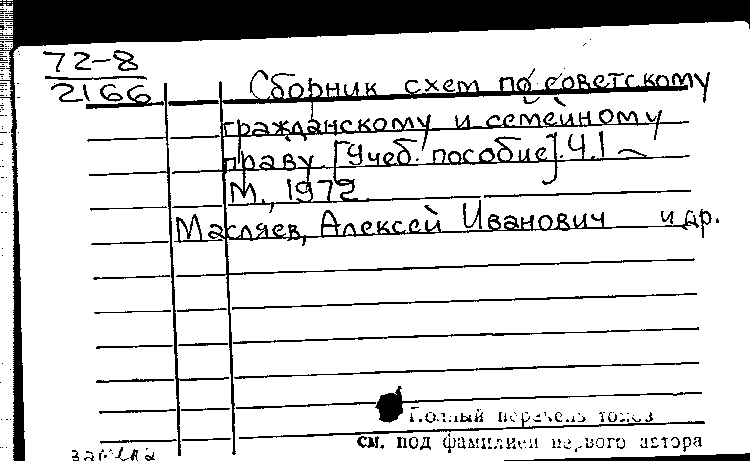 72-8
2166
Сборник схем по советскому
гражданскому и семейному
праву [Учеб. пособие]. Ч.1
М., 1972
Масляев, Алексей Иванович и др.
Полный перечень томов
см. под фамилией первого автора